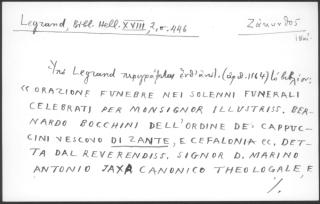 Legrand, Bibl. Hell. XVIII, 2, σ. 446
Ζάκυνθος
Ὑπὸ Legrand περιγράφεται (ἀρ. 1164) τὸ βιβλίον:
«ORAZIONE FUNEBRE NEI SOLENNI FUNERALI
CELEBRATI PER MONSIGNOR ILLUSTRISS. BER-
NARDO BOCCHINI DELL'ORDINE DE' CAPPUC-
CINI VESCOVO DI ZANTE, E CEFALONIA EC. DET-
TA DAL REVERENDISS. SIGNOR D. MARINO
ANTONIO JAXA CANONICO THEOLOGALE, E
%.